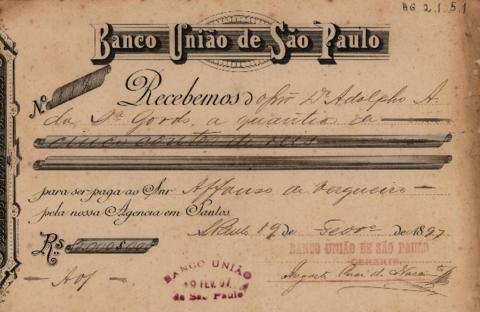 AG 2.1.5.1
Banco União de São Paulo
Nº
Recebemos do Dr Adolpho A.
da Sª Gordo, a quantia de
cinco contos de reis
para ser paga ao Snr Affonso de Vergueiro
pela nossa Agencia em Santos.
S. Paulo 19 de Fevro de 1897
Rs 5:000$000
BANCO UNIÃO DE SÃO PAULO
GERENTE
BANCO UNIÃO
19 FEV. 97
de São Paulo